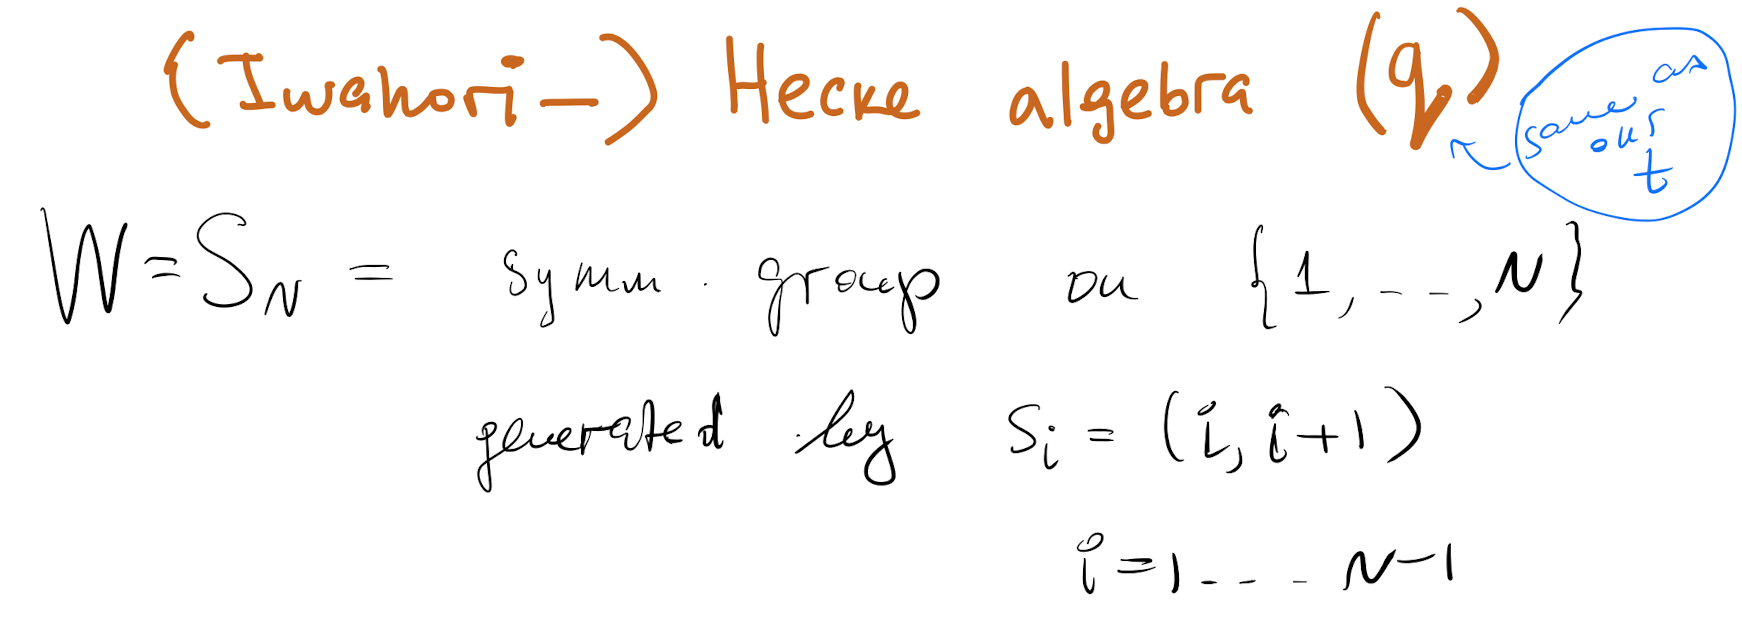 (Iwahori-) Hecke algebra (q)
same as
our
t
W = S_N = symm. group on {1, ..., N}
generated by s_i = (i, i+1)
i = 1 ... N-1